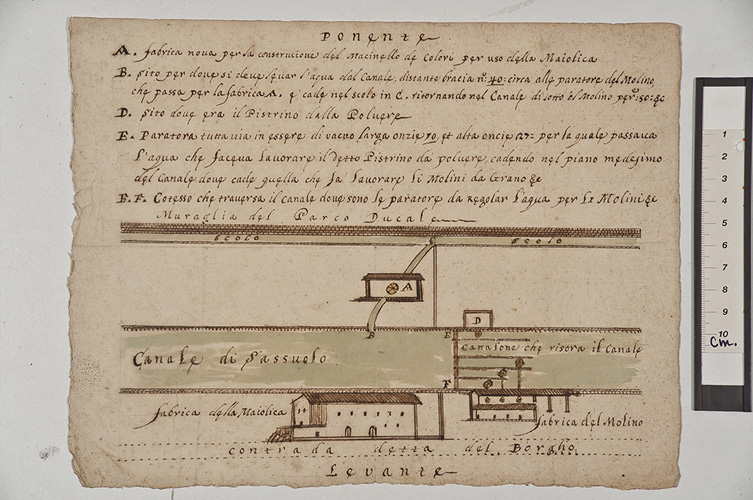 Ponente
A. fabrica nova per la construzione del Macinello de Colori per uso della Maiolica
B. Sito per doue si deue leuar l'acqua dal Canale, distante bracia n.º 40: circa alle paratore del Molino,
che passa per la fabrica A. e cade nel scolo in C. ritornando nel Canale di sotto el Molino per
D. Sito doue era il Pistrino dalla Poluere
E. Paratora tuttauia in essere di vacuo larga onzie 10, et alta oncie 12: per la quale passaua
L'aqua che faceua Lavorare il detto Pistrino da poluere, cadendo nel piano medesimo
del Canale doue cade quella che fa Lavorare Li Molini da Grano &c
E. F. Cotesso che trauersa il canale doue sono le paratore da regolar L'aqua per Li Molini &c
Muraglia del Parco Ducale
scolo C scolo
A
D
B E
Canale di Sassuolo Canalone che risora il Canale
F
fabrica della Maiolica fabrica del Molino
contrada detta del Borgho
Levante
1
2
3
4
5
6
7
8
9
10
Cm.